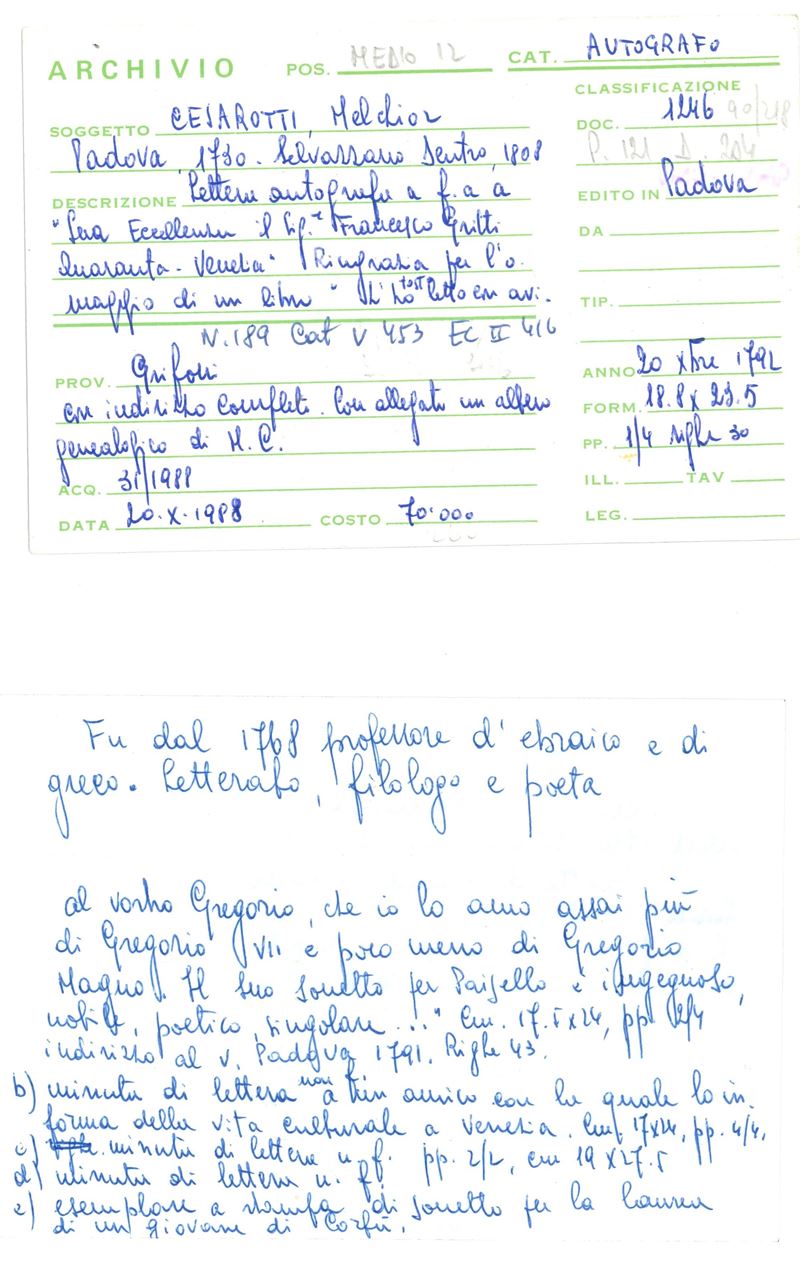 ARCHIVIO POS. MEDIO 12 CAT. AUTOGRAFO
CLASSIFICAZIONE
SOGGETTO CESAROTTI, Melchior DOC. 1246 90/218
Padova, 1730. Selvazzano Dentro, 1808 P. 121 D. 204
DESCRIZIONE Lettera autografa a f. a a EDITO IN Padova
"Sua Eccellenza il Sig.r Francesco Gritti DA
Quaranta - Venezia" Ringrazia per l'o.
maggio di un libro "L'ho tosto letto con avi. TIP.
N. 189 Cat V 453 EC II 416
PROV. Grifoni ANNO 20 Xbre 1792
con indirizzo completo. Con allegato un albero FORM. 18.8 x 23.5
genealogico di M. C. PP. 1/4 righe 30
ACQ. 31/1988 ILL. TAV
DATA 20.X.1988 COSTO 70.000 LEG.
Fu dal 1768 professore d'ebraico e di
greco. Letterato, filologo e poeta
al vostro Gregorio, che io lo amo assai più
di Gregorio VII e poco meno di Gregorio
Magno. Il suo sonetto per Paisello è ingegnoso,
nobile, poetico, singolare..." Cm. 17.5x24, pp 2/4
indirizzo al v. Padova 1791. Righe 43.
b) minuta di lettera non f. a un amico con la quale lo in.
forma della vita culturale a Venezia. Cm. 17x24, pp. 4/4,
c) minuta di lettera n. f. pp. 2/2, cm 19 x 27.5
d) minuta di lettera n. f.
e) esemplare a stampa di sonetto per la laurea
di un giovane di Corfù.